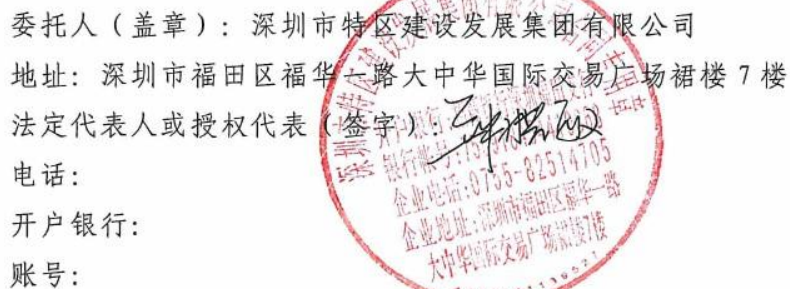 委托人（盖章）：深圳市特区建设发展集团有限公司
地址：深圳市福田区福华一路大中华国际交易广场裙楼 7 楼
法定代表人或授权代表（签字）：
电话：
开户银行：
账号：
银行帐号：
企业电话：0755-82514705
企业地址：深圳市福田区福华一路
大中华国际交易广场裙楼7楼